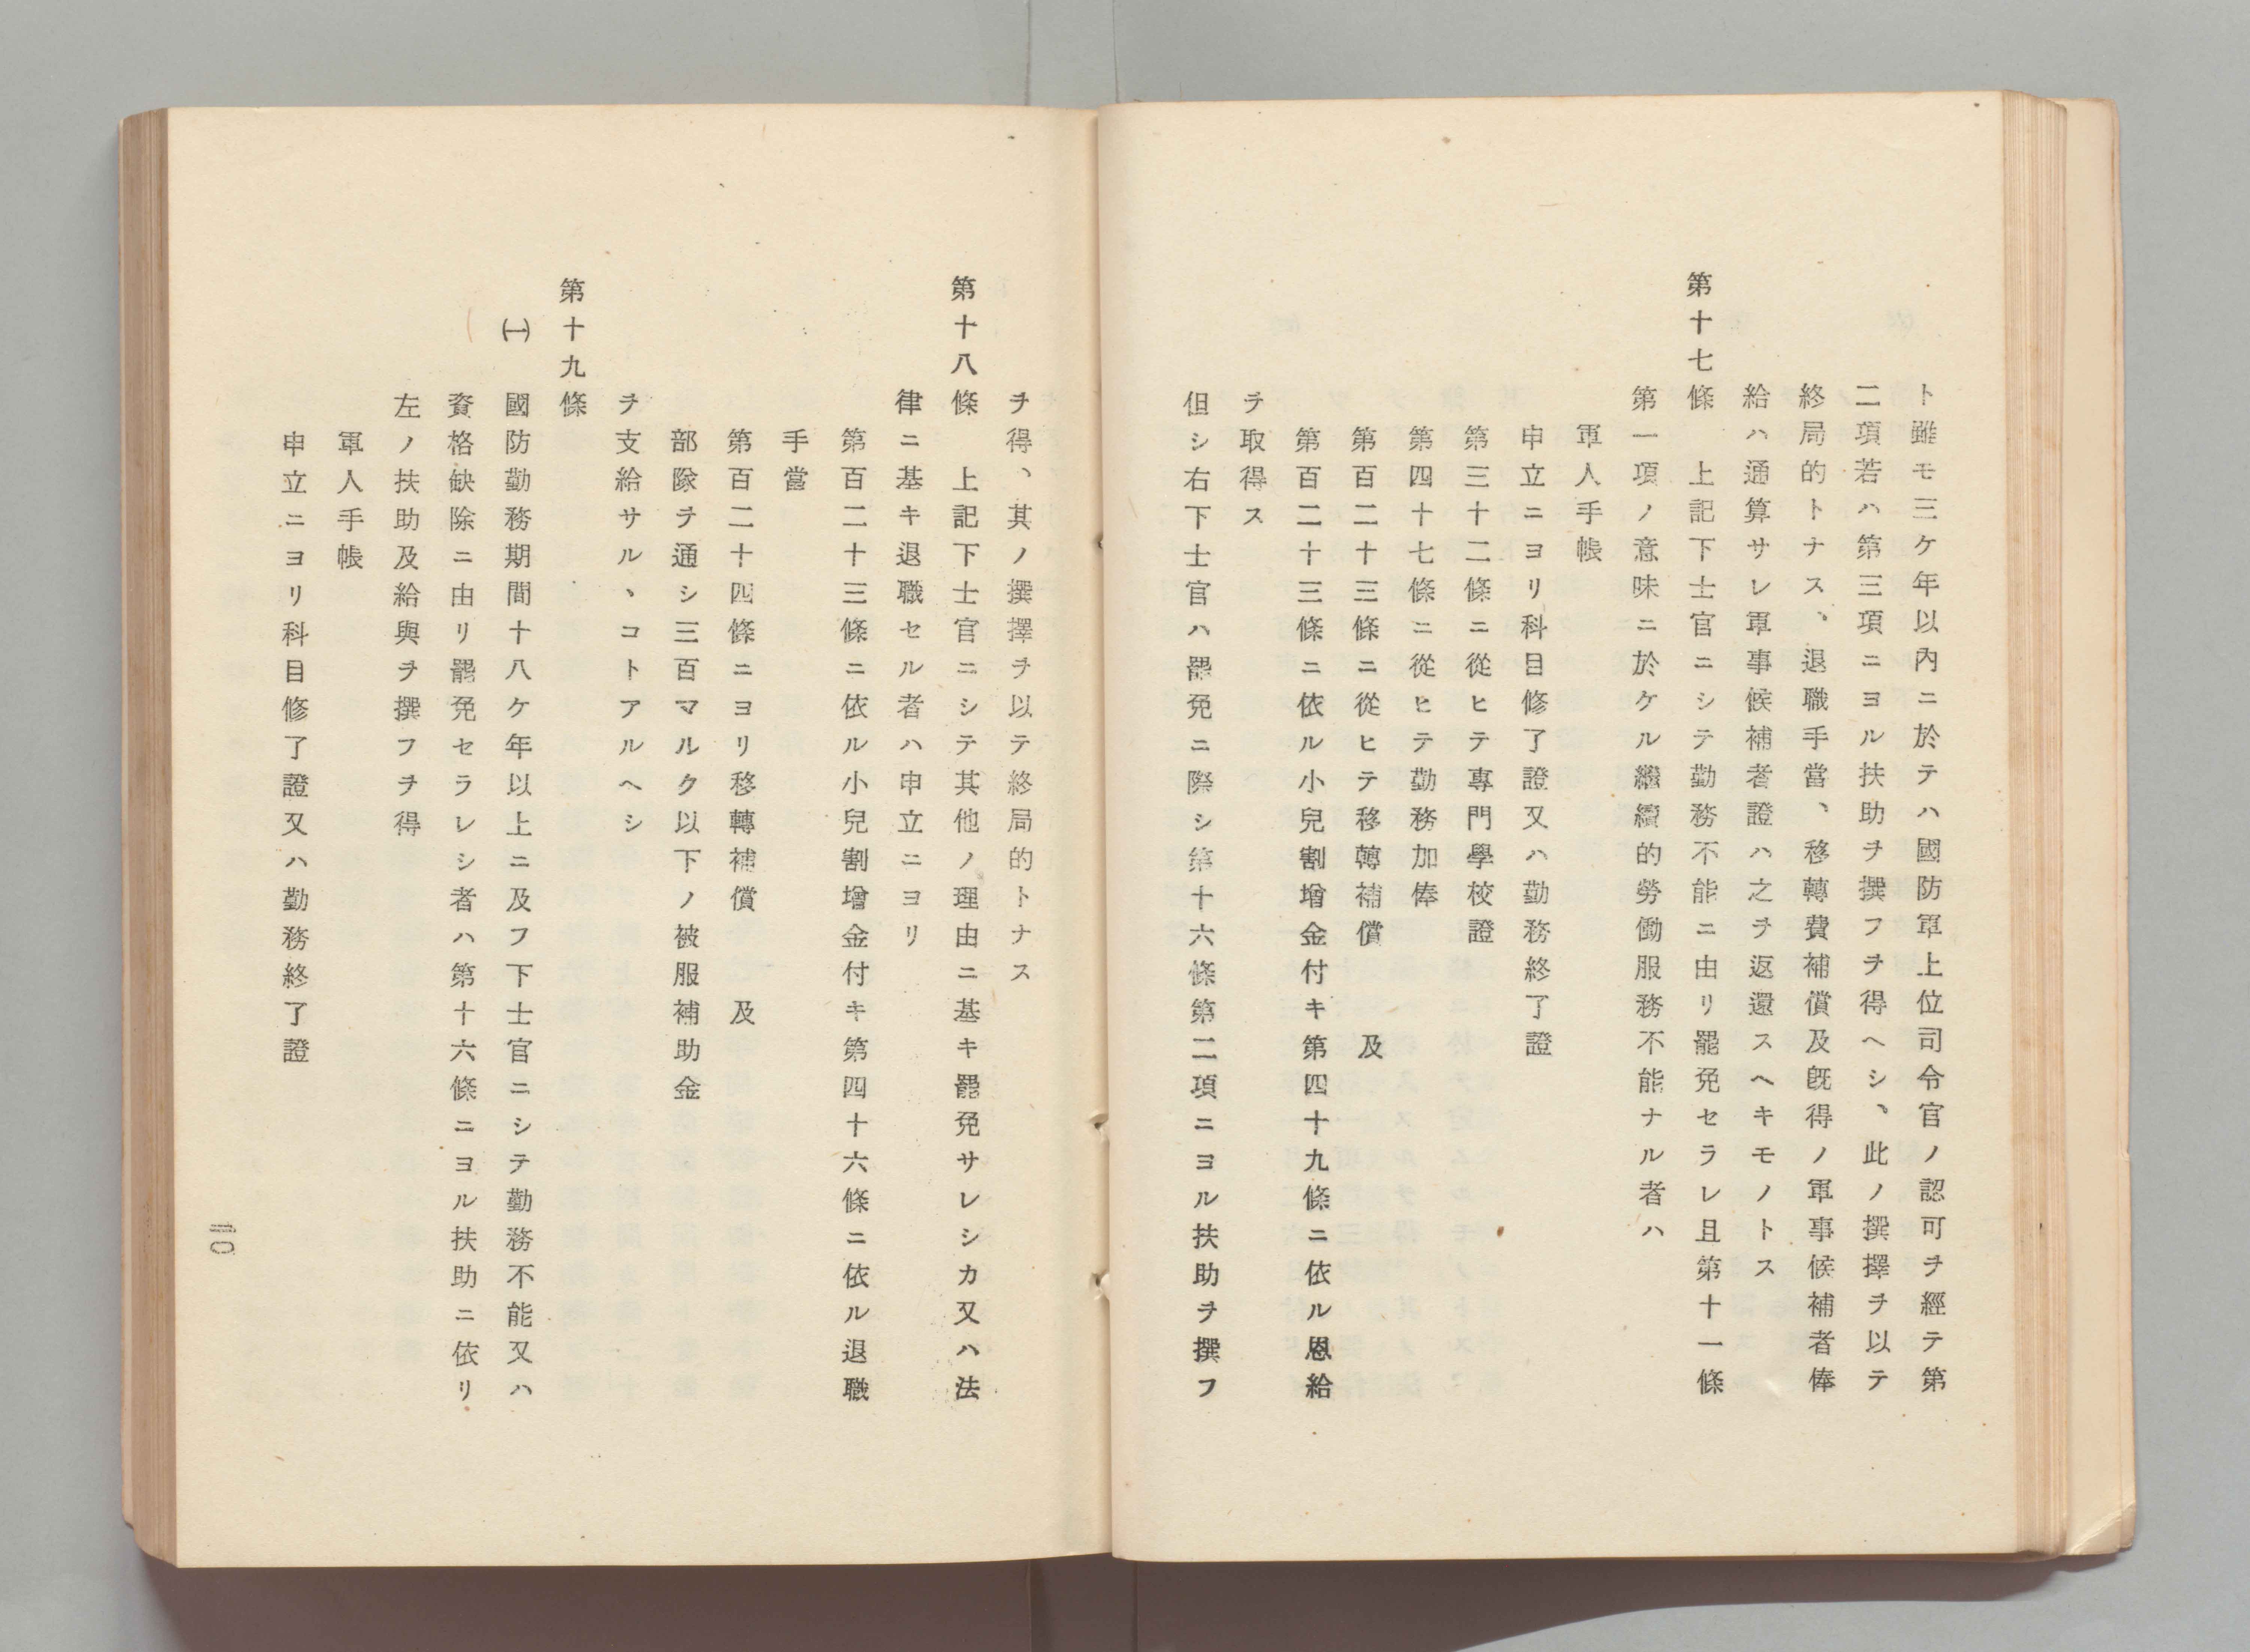 ト雖モ三ケ年以內ニ於テハ國防軍上位司令官ノ認可ヲ經テ第
二項若ハ第三項ニヨル扶助ヲ撰フヲ得ヘシ、此ノ撰擇ヲ以テ
終局的トナス、退職手當、移轉費補償及旣得ノ軍事候補者俸
給ハ通算サレ軍事候補者證ハ之ヲ返還スヘキモノトス
第十七條　上記下士官ニシテ勤務不能ニ由リ罷免セラレ且第十一條
第一項ノ意味ニ於ケル繼續的勞働服務不能ナル者ハ
軍人手帳
申立ニヨリ科目修了證又ハ勤務終了證
第三十二條ニ從ヒテ專門學校證
第四十七條ニ從ヒテ勤務加俸
第百二十三條ニ從ヒテ移轉補償　及
第百二十三條ニ依ル小兒割增金付キ第四十九條ニ依ル恩給
ヲ取得ス
但シ右下士官ハ罷免ニ際シ第十六條第二項ニヨル扶助ヲ撰フ
ヲ得、其ノ撰擇ヲ以テ終局的トナス
第十八條　上記下士官ニシテ其他ノ理由ニ基キ罷免サレシカ又ハ法
律ニ基キ退職セル者ハ申立ニヨリ
第百二十三條ニ依ル小兒割增金付キ第四十六條ニ依ル退職
手當
第百二十四條ニヨリ移轉補償　及
部隊ヲ通シ三百マルク以下ノ被服補助金
ヲ支給サルヽコトアルヘシ
第十九條
㈠　國防勤務期間十八ケ年以上ニ及フ下士官ニシテ勤務不能又ハ
資格缺除ニ由リ罷免セラレシ者ハ第十六條ニヨル扶助ニ依リ
左ノ扶助及給與ヲ撰フヲ得
軍人手帳
申立ニヨリ科目修了證又ハ勤務終了證